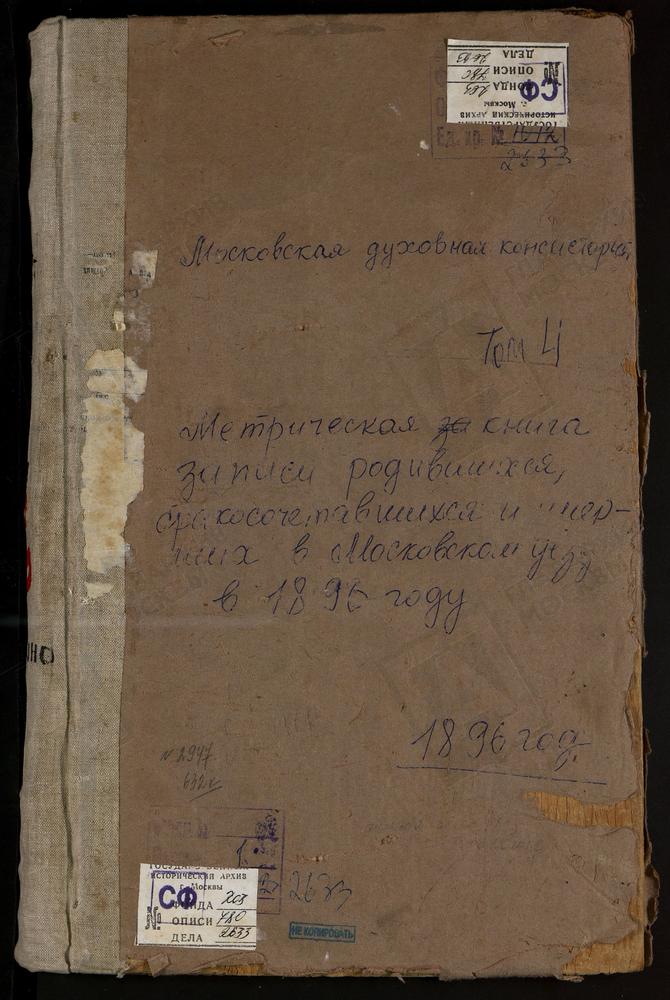 ДЕЛА 2633
ОПИСИ 780
№ ФОНДА 203
СФ
г. Москвы
ИСТОРИЧЕСКИЙ АРХИВ
ГОСУДАРСТВЕННЫЙ
Ед. хр. №
2633
Московская духовная консистория
Том 4
Метрическая за книга
записи родившихся,
бракосочетавшихся и умер-
ших в Московском уезде
в 1896 году
1896 год
№ 2947
1
2633
ИСТОРИЧЕСКИЙ АРХИВ
г. Москвы
СФ
ФОНДА 203
№ ОПИСИ 780
ДЕЛА 2633
НЕ КОПИРОВАТЬ